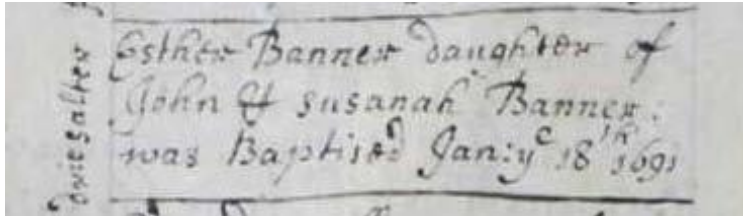 Esther Banner daughter of
John & Susanah Banner.
was Baptised Jan:ye 18th 1691